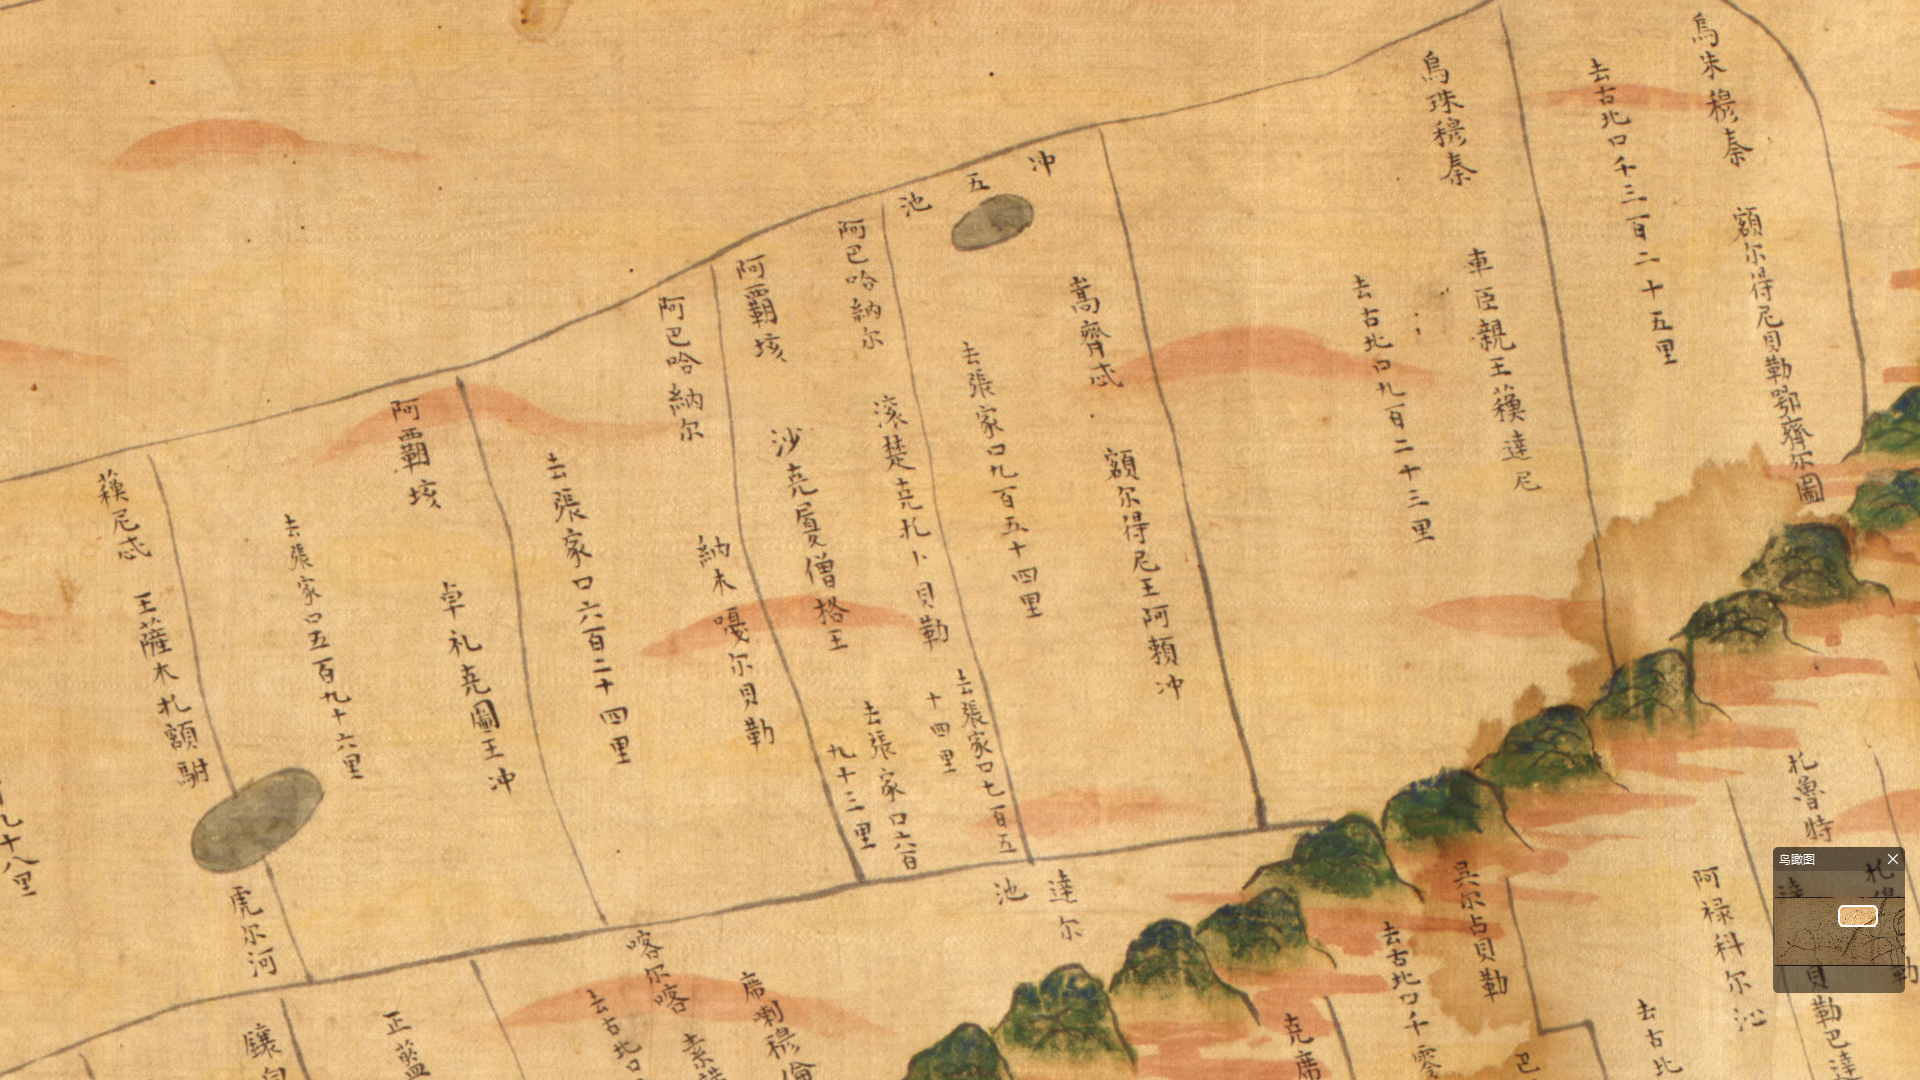 烏朱穆秦
額尔得尼貝勒鄂齊尔圖
去古北口千三百二十五里
烏珠穆秦
車臣親王蘓達尼
去古北口九百二十三里
冲五池
嵩齊忒
額尔得尼王阿賴冲
去張家口九百五十四里
阿巴哈納尔
滚楚克札卜貝勒
去張家口七百五十四里
阿覇垓
沙克㕓僧格王
去張家口六百九十三里
阿巴哈納尔
納木嘎尔貝勒
去張家口六百二十四里
阿覇垓
卓礼克圖王冲
去張家口五百九十六里
蘓尼忒
王薩木札額駙
九十八里
虎尔河
達尔
池
札魯特
阿祿科尔沁
去古北
吴尔占貝勒
去古北口千零
克席
巴
貝勒巴達
勒
席喇穆倫
喀尔喀
去古北口
正藍
鑲白
鸟瞰图